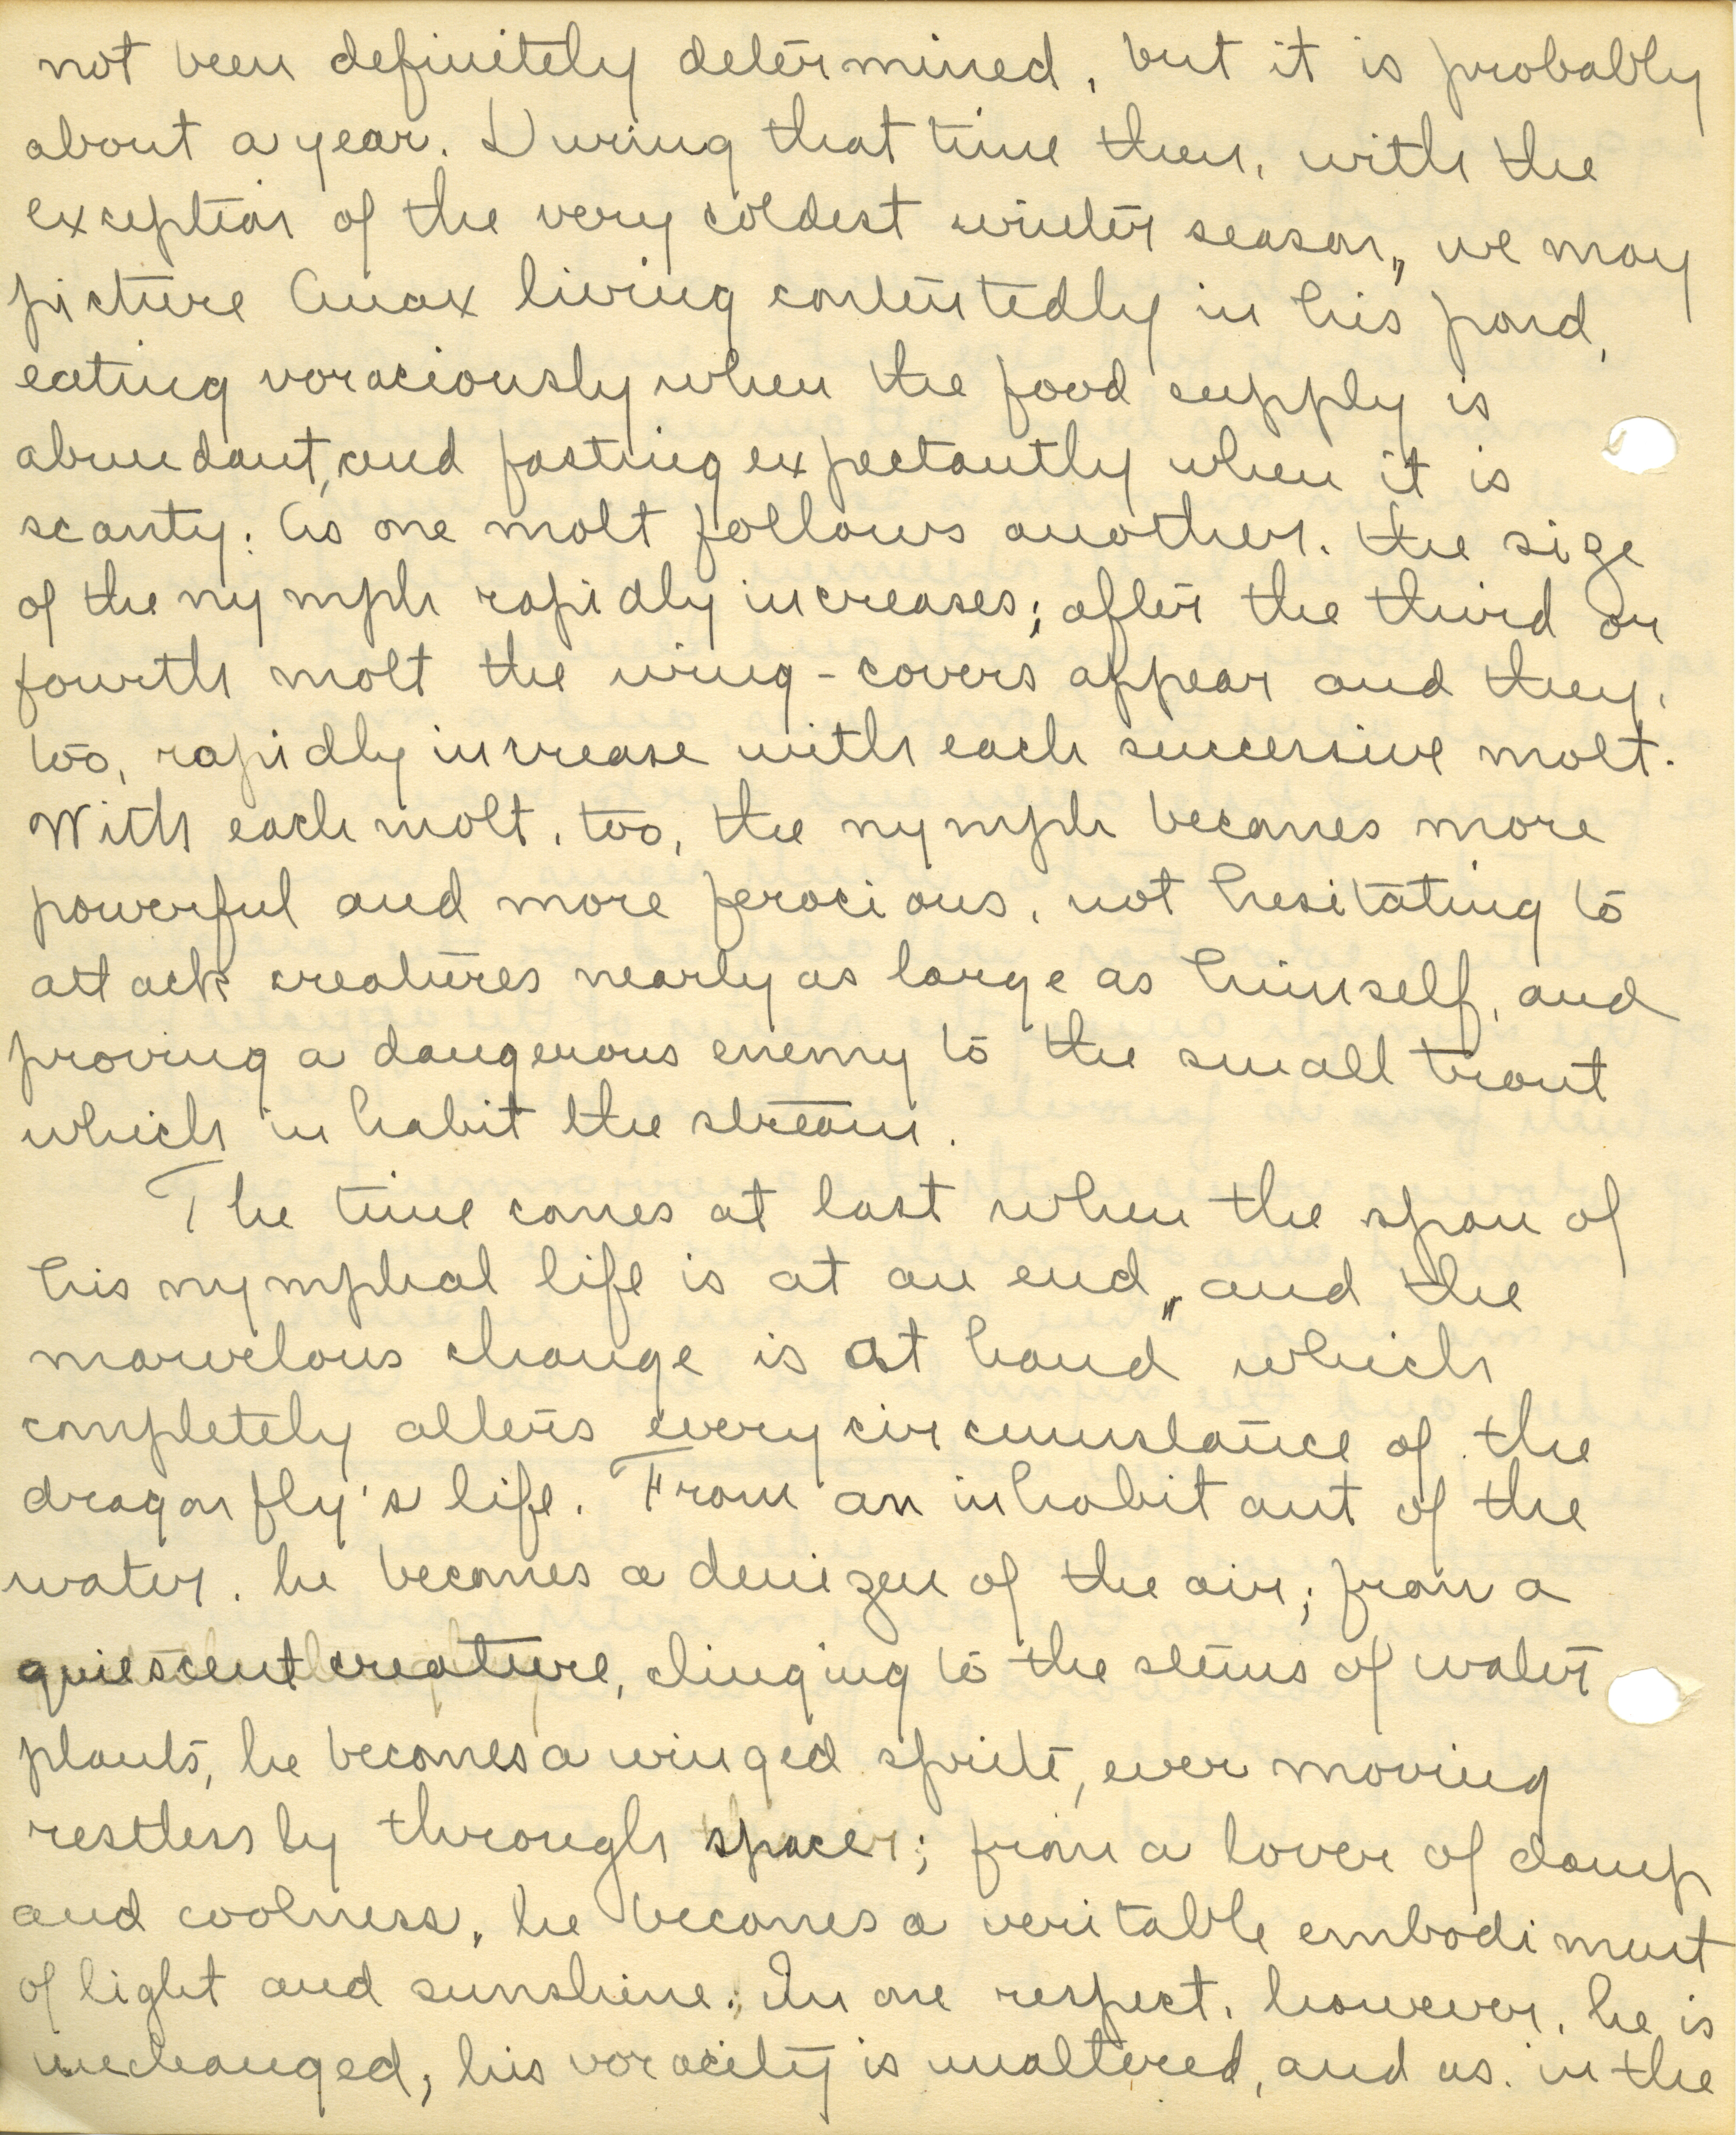 not been definitely determined, but it is probably
about a year. During that time then, with the
exception of the very coldest winter season,, we may
picture Anax living contentedly in his pond,
eating voraciously when the food supply is
abundant, and fasting expectantly when it is
scanty. As one molt follows another. the size
of the nymph rapidly increases; after the third or
fourth molt the wing-covers appear and they,
too, rapidly increase with each successive molt.
With each molt, too, the nymph becomes more
powerful and more ferocious, not hesitating to
attack creatures nearly as large as himself, and
proving a dangerous enemy to the small trout
which inhabit the stream.
The time comes at last when the span of
his nymphal life is at an end,, and the
marvelous change is at hand which
completely alters every circumstance of the
dragonfly's life. From an inhabitant of the
water, he becomes a denizen of the air; from a
quiescent creature, clinging to the stems of water
plants, he becomes a winged sprite, ever moving
restlessly through space; from a lover of damp
and coolness, he becomes a veritable embodiment
of light and sunshine. In one respect, however, he is
unchanged; his voracity is unaltered, and as in the